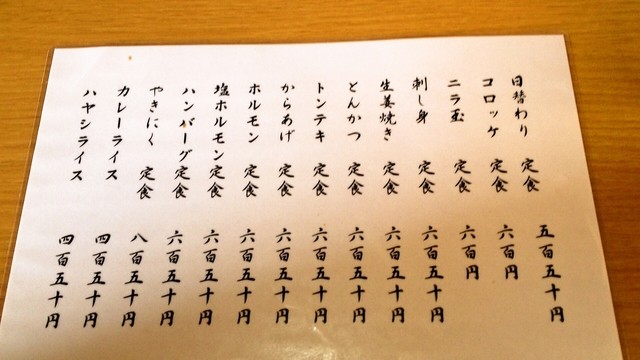 日替わり 定食 五百五十円
コロッケ 定食 六百円
ニラ玉 定食 六百円
刺し身 定食 六百五十円
生姜焼き 定食 六百五十円
とんかつ 定食 六百五十円
トンテキ 定食 六百五十円
からあげ 定食 六百五十円
ホルモン 定食 六百五十円
塩ホルモン 定食 六百五十円
ハンバーグ 定食 六百五十円
やきにく 定食 八百五十円
カレーライス 四百五十円
ハヤシライス 四百五十円